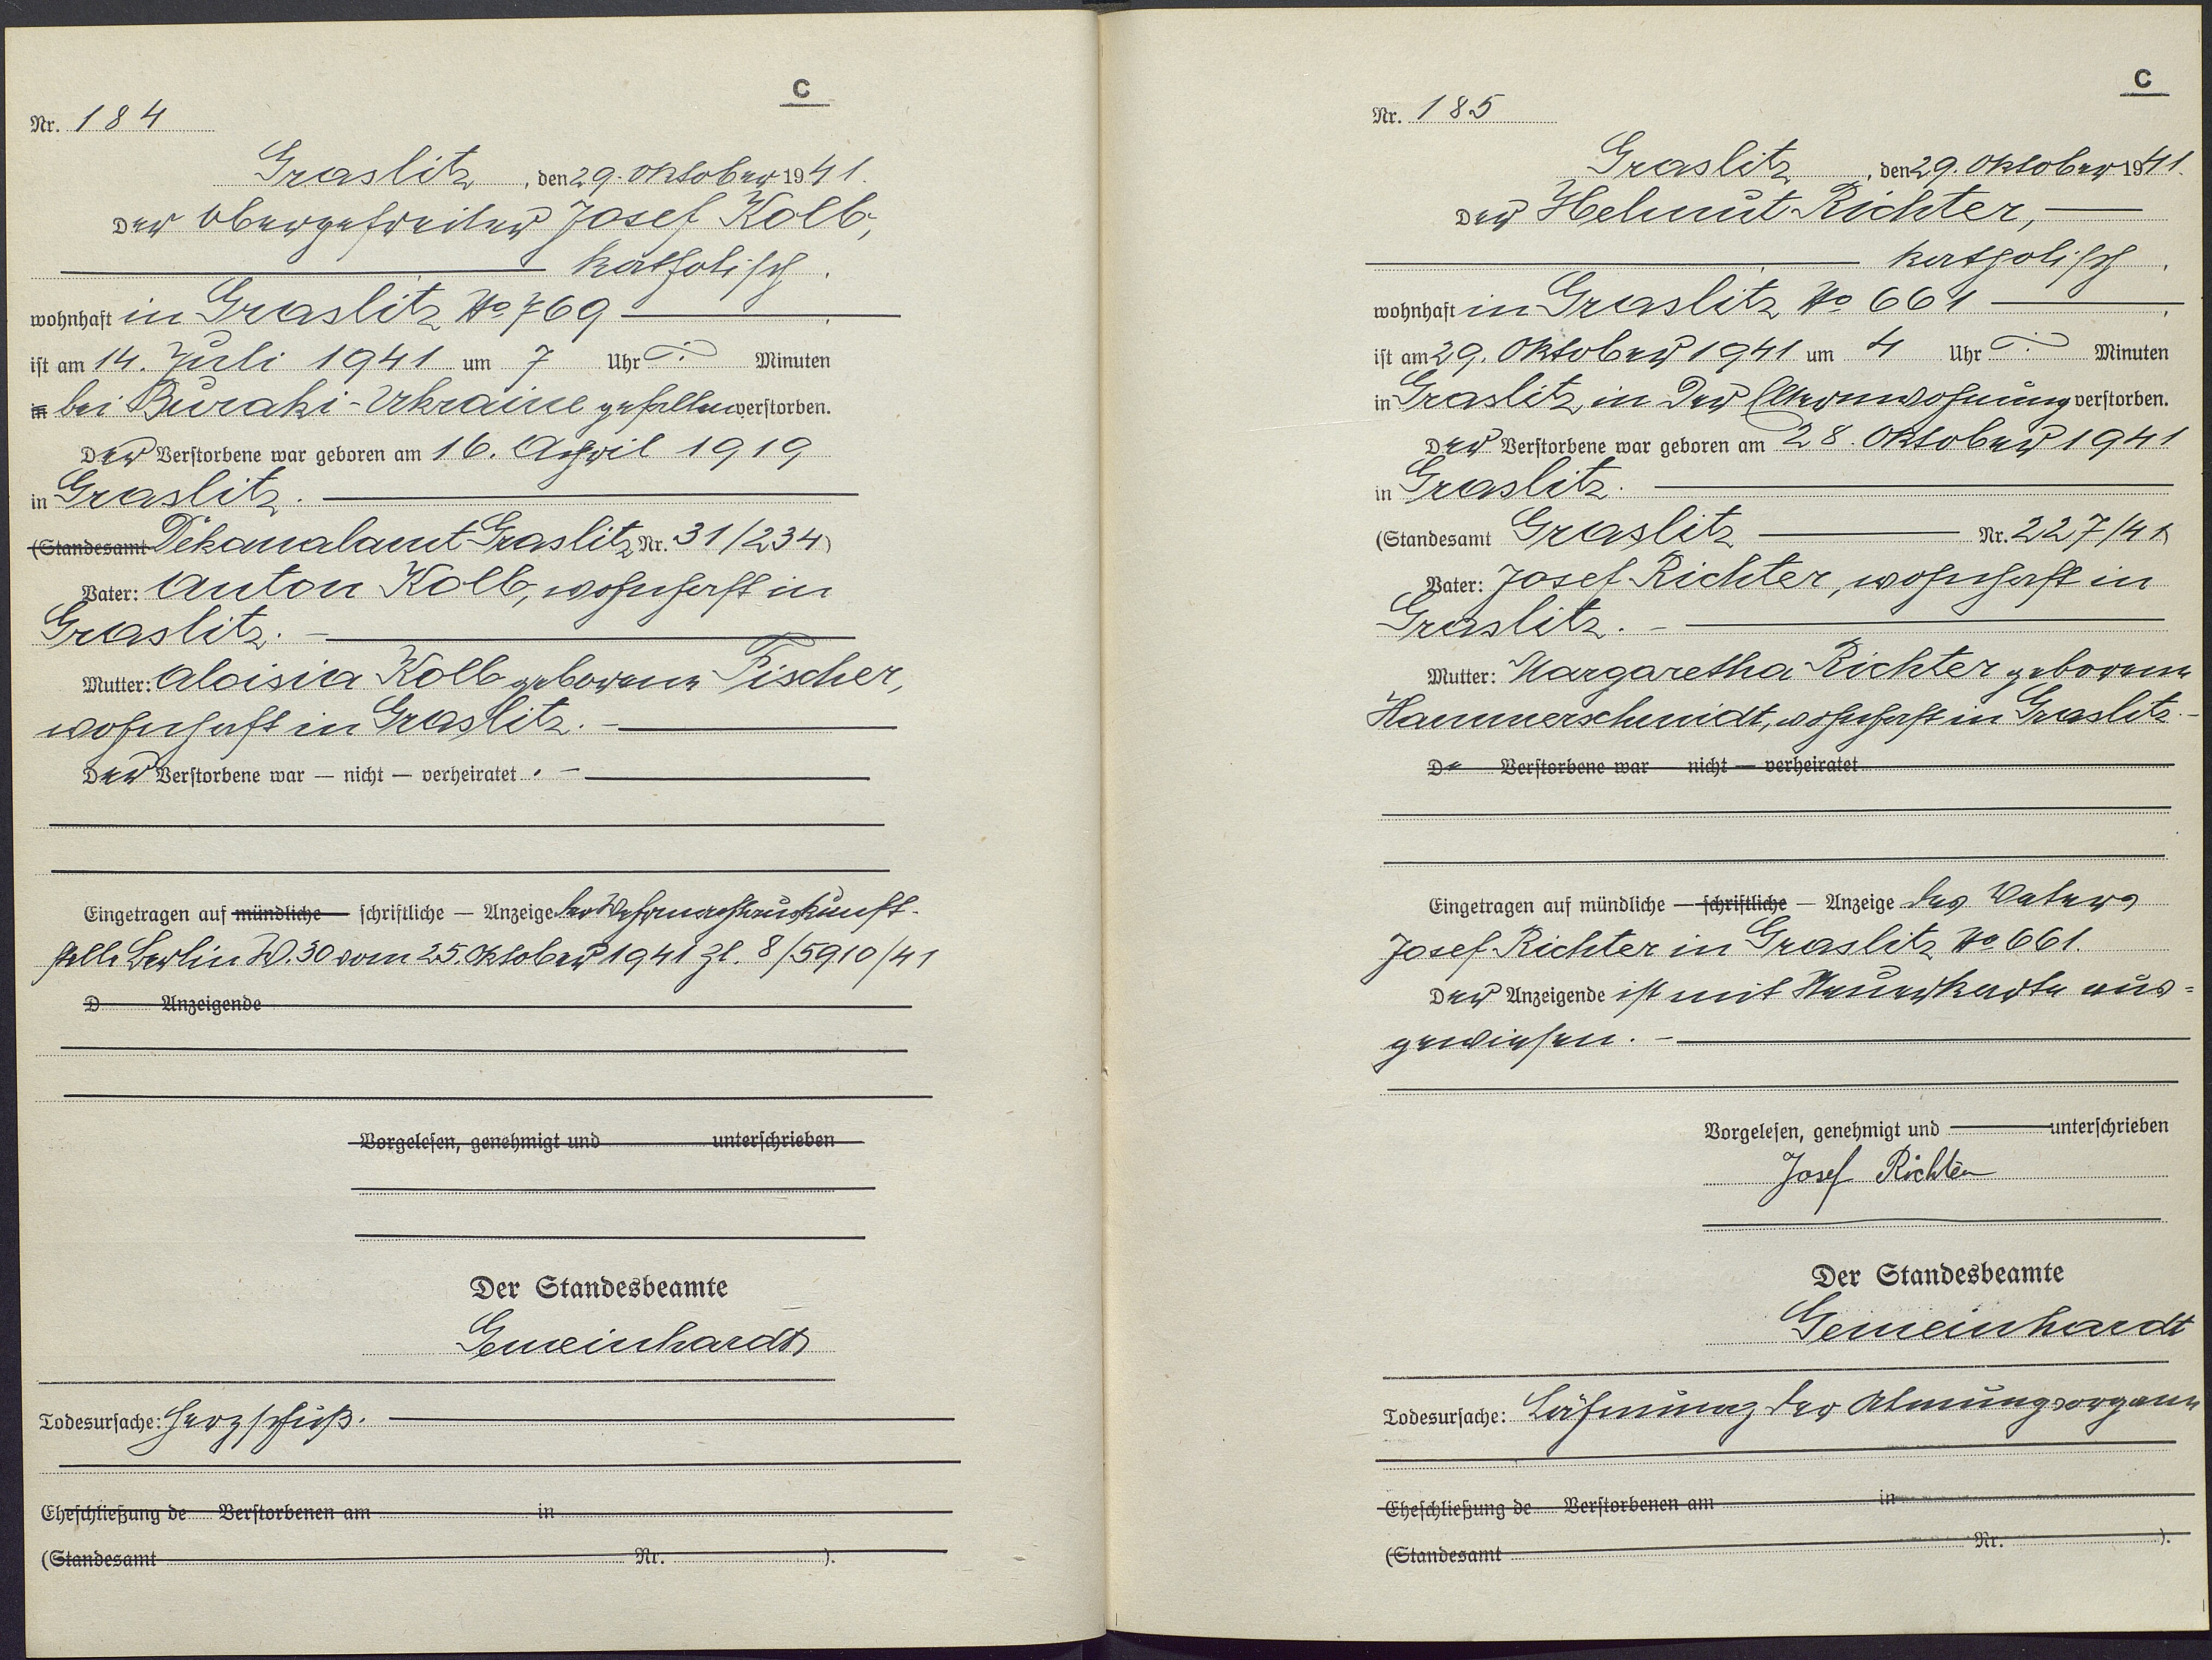 C
Nr. 184
Graslitz, den 29. Oktober 1941.
Der Obergefreiter Josef Kolb,
katholisch.
wohnhaft in Graslitz No 769
ist am 14. Juli 1941 um 7 Uhr -:- Minuten
in bei Buraki-Ukraine gefallen verstorben.
Der Verstorbene war geboren am 16. April 1919
in Graslitz.
(Standesamt Dekanalamt Graslitz Nr. 31/234)
Vater: Anton Kolb, wohnhaft in
Graslitz. -
Mutter: Aloisia Kolb geborene Fischer,
wohnhaft in Graslitz. -
Der Verstorbene war — nicht — verheiratet. -
Eingetragen auf mündliche — schriftliche — Anzeige der Wehrmachtauskunft-
stelle Berlin W.30 vom 25. Oktober 1941 Zl. 8/5910/41
D Anzeigende
Vorgelesen, genehmigt und unterschrieben
Der Standesbeamte
Gemeinhardt
Todesursache: Herzschuß.
Eheschließung de Verstorbenen am in
(Standesamt Nr. ).
C
Nr. 185
Graslitz, den 29. Oktober 1941.
Der Helmut Richter,
katholisch.
wohnhaft in Graslitz No 661
ist am 29. Oktober 1941 um 4 Uhr -:- Minuten
in Graslitz, in der Elternwohnung verstorben.
Der Verstorbene war geboren am 28. Oktober 1941
in Graslitz.
(Standesamt Graslitz Nr. 227/41)
Vater: Josef Richter, wohnhaft in
Graslitz. -
Mutter: Margaretha Richter geborene
Hammerschmidt, wohnhaft in Graslitz. -
De Verstorbene war — nicht — verheiratet
Eingetragen auf mündliche — schriftliche — Anzeige des Vaters
Josef Richter in Graslitz No 661.
Der Anzeigende ist mit Steuerkarte aus-
gewiesen. -
Vorgelesen, genehmigt und unterschrieben
Josef Richter
Der Standesbeamte
Gemeinhardt
Todesursache: Lähmung der Atmungsorgane
Eheschließung de Verstorbenen am in
(Standesamt Nr. ).